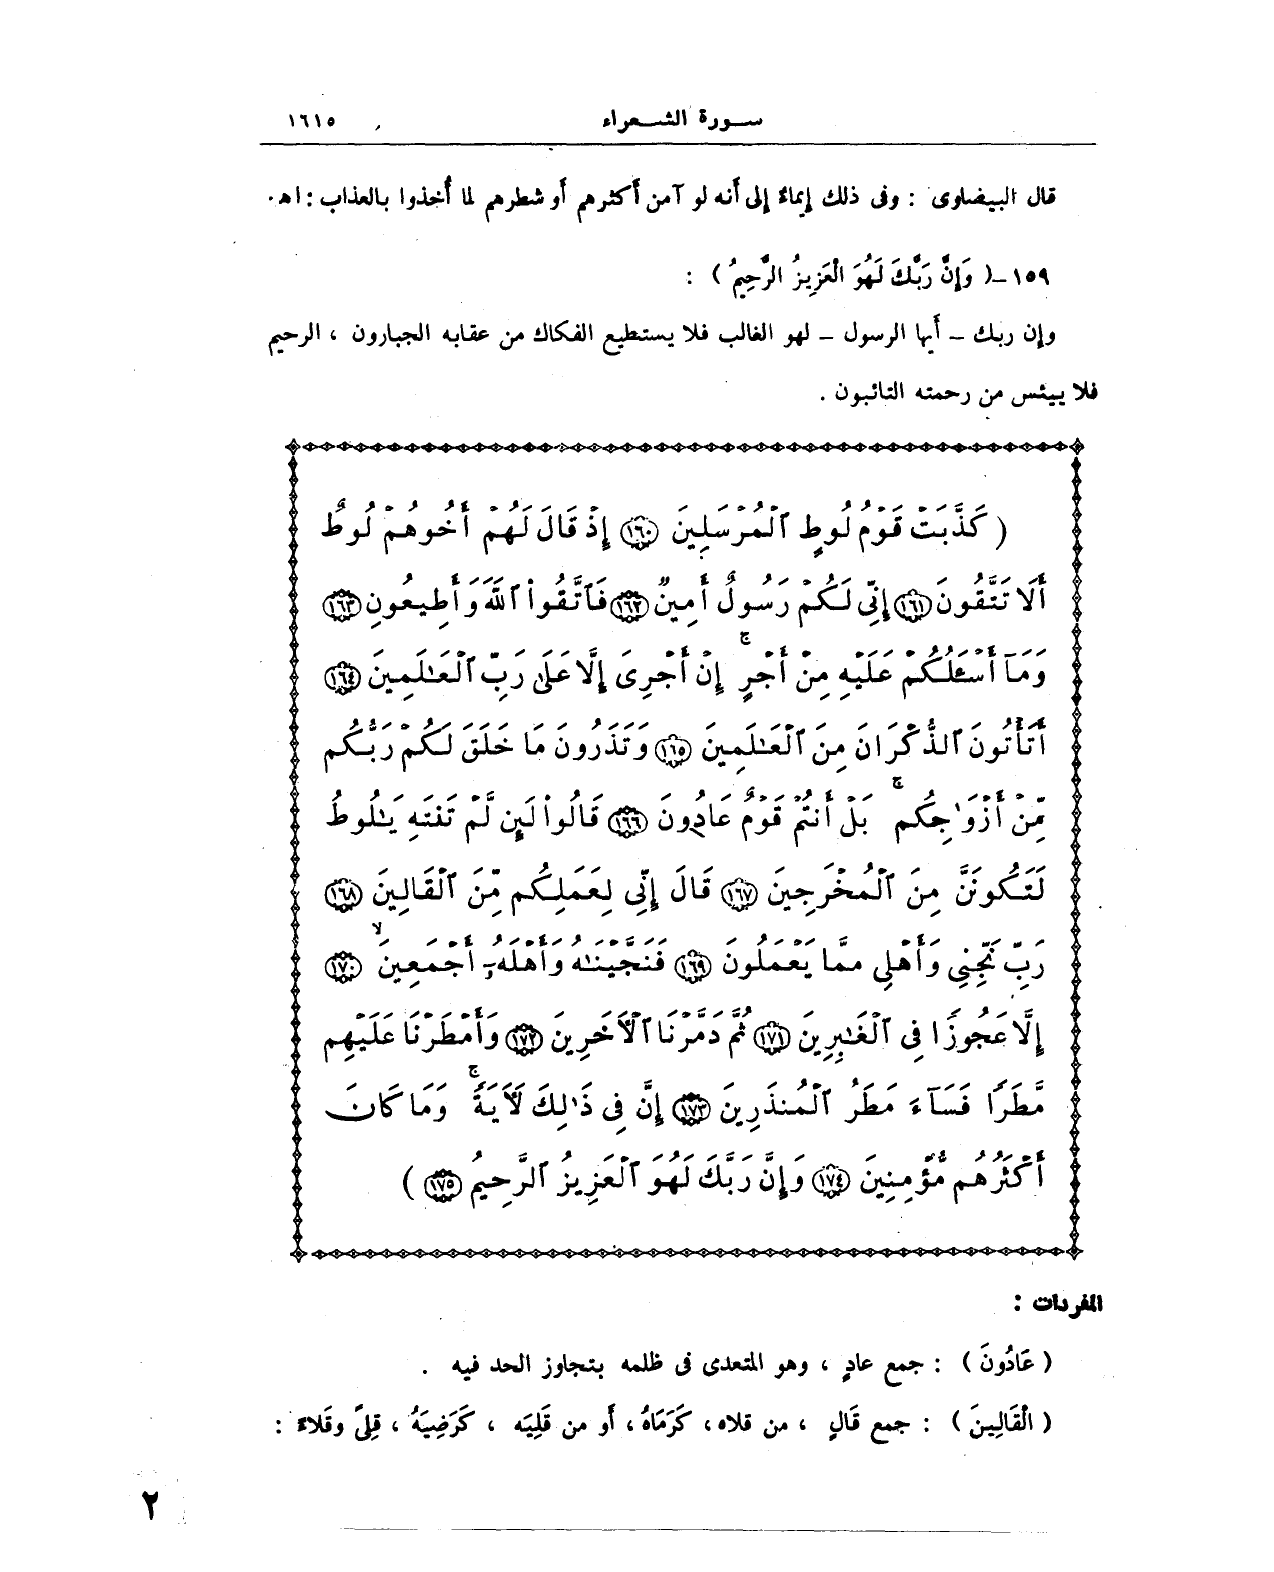 سورة الشعراء ١٦١٥
قال البيضاوى : وفى ذلك إيماءٌ إلى أَنه لو آمن أَكثرهم أَو شطرهم لما أُخذوا بالعذاب : اهـ.
١٥٩ـ ( وَإِنَّ رَبَّكَ لَهُوَ الْعَزِيزُ الرَّحِيمُ ) :
وإن ربك – أَيها الرسول – لهو الغالب فلا يستطيع الفكاك من عقابه الجبارون ، الرحيم
فلا ييئس من رحمته التائبون .
( كَذَّبَتْ قَوْمُ لُوطٍ ٱلْمُرْسَلِينَ ١٦٠ إِذْ قَالَ لَهُمْ أَخُوهُمْ لُوطٌ
أَلَا تَتَّقُونَ ١٦١ إِنِّى لَكُمْ رَسُولٌ أَمِينٌ ١٦٢ فَٱتَّقُوا۟ ٱللَّهَ وَأَطِيعُونِ ١٦٣
وَمَآ أَسْـَٔلُكُمْ عَلَيْهِ مِنْ أَجْرٍ ۖ إِنْ أَجْرِىَ إِلَّا عَلَىٰ رَبِّ ٱلْعَـٰلَمِينَ ١٦٤
أَتَأْتُونَ ٱلذُّكْرَانَ مِنَ ٱلْعَـٰلَمِينَ ١٦٥ وَتَذَرُونَ مَا خَلَقَ لَكُمْ رَبُّكُم
مِّنْ أَزْوَٰجِكُم ۚ بَلْ أَنتُمْ قَوْمٌ عَادُونَ ١٦٦ قَالُوا۟ لَئِن لَّمْ تَنتَهِ يَـٰلُوطُ
لَتَكُونَنَّ مِنَ ٱلْمُخْرَجِينَ ١٦٧ قَالَ إِنِّى لِعَمَلِكُم مِّنَ ٱلْقَالِينَ ١٦٨
رَبِّ نَجِّنِى وَأَهْلِى مِمَّا يَعْمَلُونَ ١٦٩ فَنَجَّيْنَـٰهُ وَأَهْلَهُۥٓ أَجْمَعِينَ ۙ ١٧٠
إِلَّا عَجُوزًا فِى ٱلْغَـٰبِرِينَ ١٧١ ثُمَّ دَمَّرْنَا ٱلْـَٔاخَرِينَ ١٧٢ وَأَمْطَرْنَا عَلَيْهِم
مَّطَرًا فَسَآءَ مَطَرُ ٱلْمُنذَرِينَ ١٧٣ إِنَّ فِى ذَٰلِكَ لَـَٔايَةً ۚ وَمَا كَانَ
أَكْثَرُهُم مُّؤْمِنِينَ ١٧٤ وَإِنَّ رَبَّكَ لَهُوَ ٱلْعَزِيزُ ٱلرَّحِيمُ ١٧٥ )
المفردات :
( عَادُونَ ) : جمع عادٍ ، وهو المتعدى فى ظلمه بتجاوز الحد فيه .
( الْقَالِينَ ) : جمع قَالٍ ، من قلاه ، كَرَمَاهُ ، أَو من قَلِيَه ، كَرَضِيَهُ ، قِلىً وقَلاءً :
٢